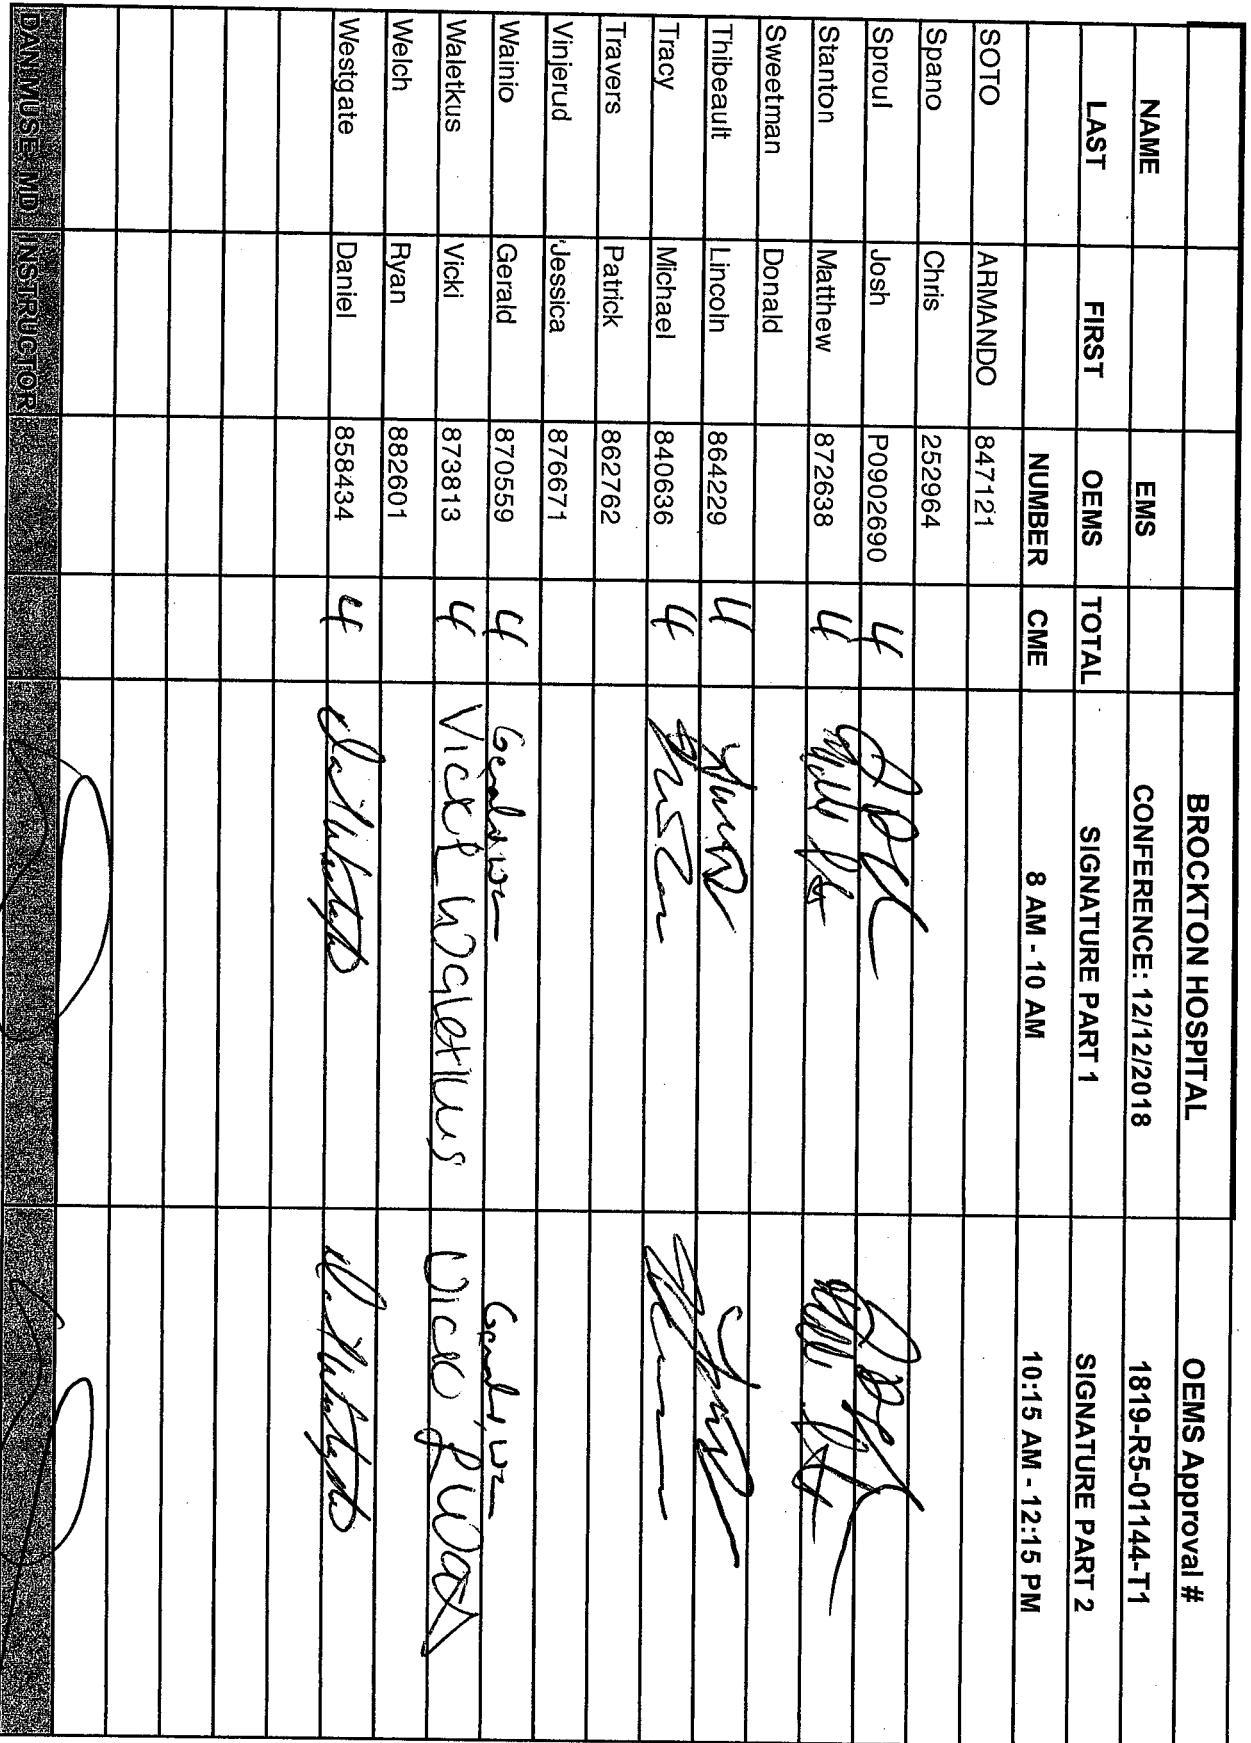 BROCKTON HOSPITAL OEMS Approval #
NAME EMS CONFERENCE: 12/12/2018 1819-R5-01144-T1
LAST FIRST OEMS TOTAL SIGNATURE PART 1 SIGNATURE PART 2
NUMBER CME 8 AM - 10 AM 10:15 AM - 12:15 PM
SOTO ARMANDO 847121
Spano Chris 252964
Sproul Josh P0902690 4
Stanton Matthew 872638 4
Sweetman Donald
Thibeault Lincoln 864229 4
Tracy Michael 840636 4
Travers Patrick 862762
Vinjerud Jessica 876671
Wainio Gerald 870559 4 Gerald Gerald
Waletkus Vicki 873813 4 Vicki Waletkus Vicki
Welch Ryan 882601
Westgate Daniel 858434 4
DAN MUSE MD INSTRUCTOR